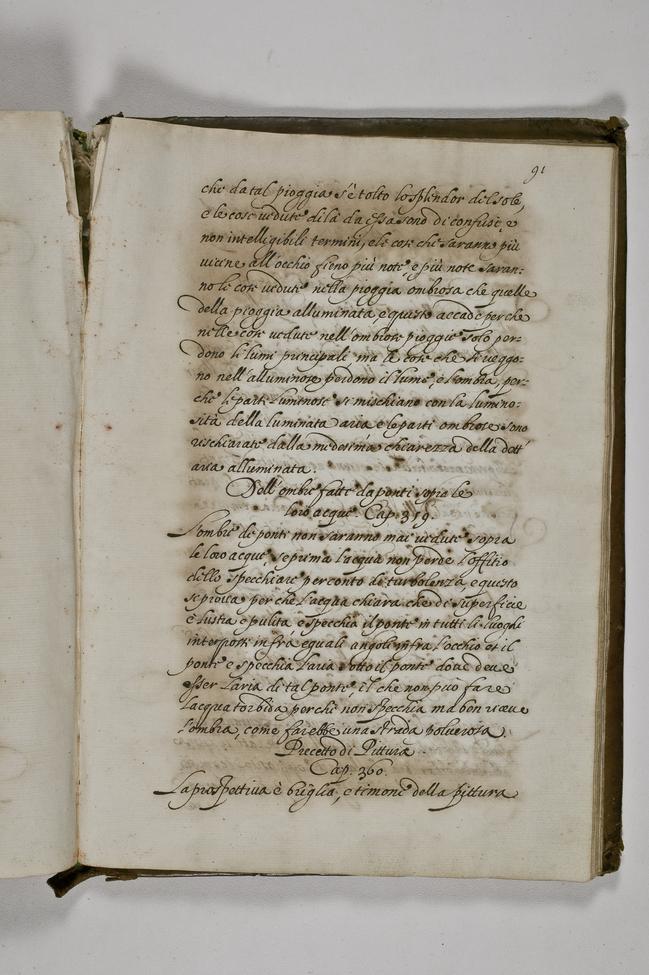 91
che da tal pioggia s'è tolto lo splendor del sole,
e le cose vedute di là da essa sono di confusi, e
non intelligibili termini, e le cose che saranno più
vicine all'occhio fieno più note, e più note saran-
no le cose vedute nella pioggia ombrosa che quelle
della pioggia alluminata, e questo accade perche
nelle cose vedute nell'ombrose pioggie solo per-
dono li lumi principali ma le cose che si veggo-
no nell'alluminose perdono il lume, e l'ombra, per-
che le parti luminose si mischiano con la lumino-
sità della luminata aria e le parti ombrose sono
rischiarate dalla medesima chiarezza della dett'
aria alluminata.
Dell'ombre fatte da ponti sopra le
loro acque. Cap. 359.
L'ombre de ponti non saranno mai vedute sopra
le loro acque, se prima l'acqua non perde l'offitio
dello specchiare per conto di turbolenza e questo
si prova perche l'acqua chiara che di superficie
è lustra e pulita e specchia il ponte in tutti li luoghi
interposti infrà equali angoli infra l'occhio et il
ponte e specchia l'aria sotto il ponte dove deve
esser l'aria di tal ponte, il che non può fare
l'acqua torbida perche non specchia ma ben riceve
l'ombra, come farebbe una strada polverosa.
Precetto di Pittura
Cap. 360.
La prospettiva è briglia, e timone della pittura